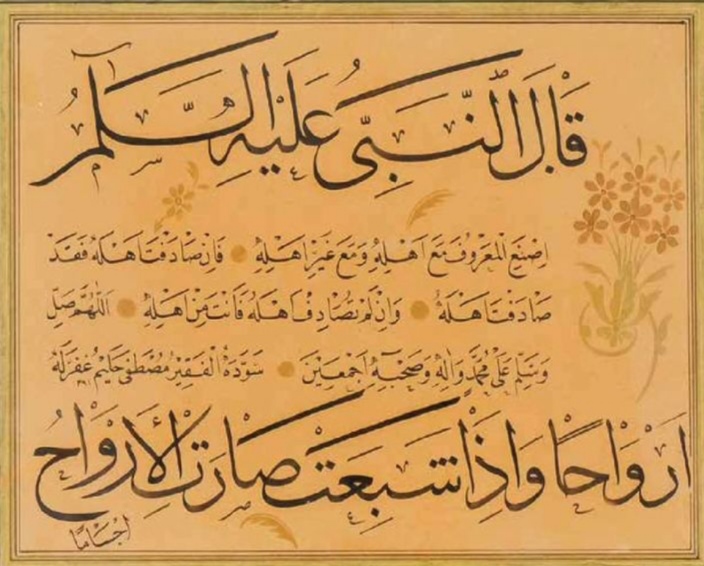 قَالَ النَّبِيُّ عَلَيْهِ السَّلَامُ
اِصْنَعِ الْمَعْرُوفَ مَعَ اَهْلِهِ وَمَعَ غَيْرِ اَهْلِهِ ۞ فَاِنْ صَادَفْتَ اَهْلَهُ فَقَدْ
صَادَفْتَ اَهْلَهُ ۞ وَاِنْ لَمْ تُصَادِفْ اَهْلَهُ فَاَنْتَ مِنْ اَهْلِهِ ۞ اَللّٰهُمَّ صَلِّ
وَسَلِّمْ عَلٰى مُحَمَّدٍ وَاٰلِهِ وَصَحْبِهِ اَجْمَعِينَ ۞ سَوَّدَهُ الْفَقِيرُ مُصْطَفٰى حَلِيمْ غُفِرَ لَهُ
اَرْوَاحًا وَاِذَا شَبِعَتْ صَارَتِ الْاَرْوَاحُ
اَجْسَامًا